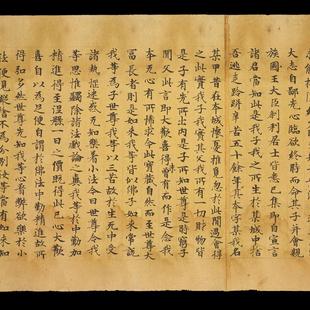 大志自鄙先心臨欲終時而命其子并會親
族國王大臣剎利居士皆悉已集即自宣言
諸君當知此是我子我之所生於某城中捨
吾逃走跉跰辛苦五十餘年其本字某我名
某甲昔在本城懷憂推覓忽於此間遇會得
之此實我子我實其父今我所有一切財物皆
是子有先所出內是子所知世尊是時窮子
聞父此言即大歡喜得未曾有而作是念我
本无心有所悕求今此寶藏自然而至世尊大
富長者則是如來我等皆似佛子如來常說
我等為子世尊我等以三苦故於生死中受
諸熱惱迷惑无知樂著小法今日世尊令我
等思惟蠲除諸法戲論之糞我等於中勤加
精進得至涅槃一日之價既得此已心大歡
喜自以為足便自謂於佛法中勤精進故所
得弘多然世尊先知我等心著弊欲樂於小
法便見縱捨不為分別汝等當有如來知